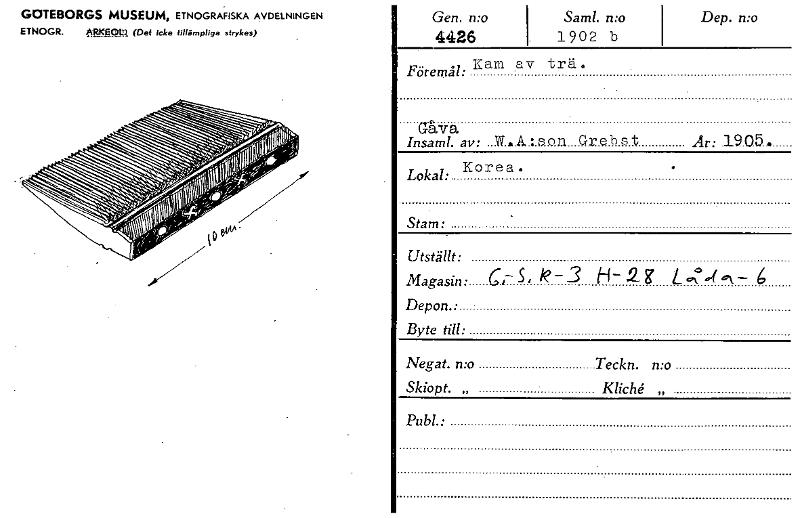 GÖTEBORGS MUSEUM, ETNOGRAFISKA AVDELNINGEN
ETNOGR. ARKEOL: (Det icke tillämpliga strykes)
10 cm.
Gen. n:o Saml. n:o Dep. n:o
4426 1902 b
Föremål: Kam av trä.
Gåva
Insaml. av: W.A:son Grebst År: 1905.
Lokal: Korea.
Stam:
Utställt:
Magasin: G.-S. R-3 H-28 Låda-6
Depon.:
Byte till:
Negat. n:o Teckn. n:o
Skiopt. „ Kliché „
Publ.: